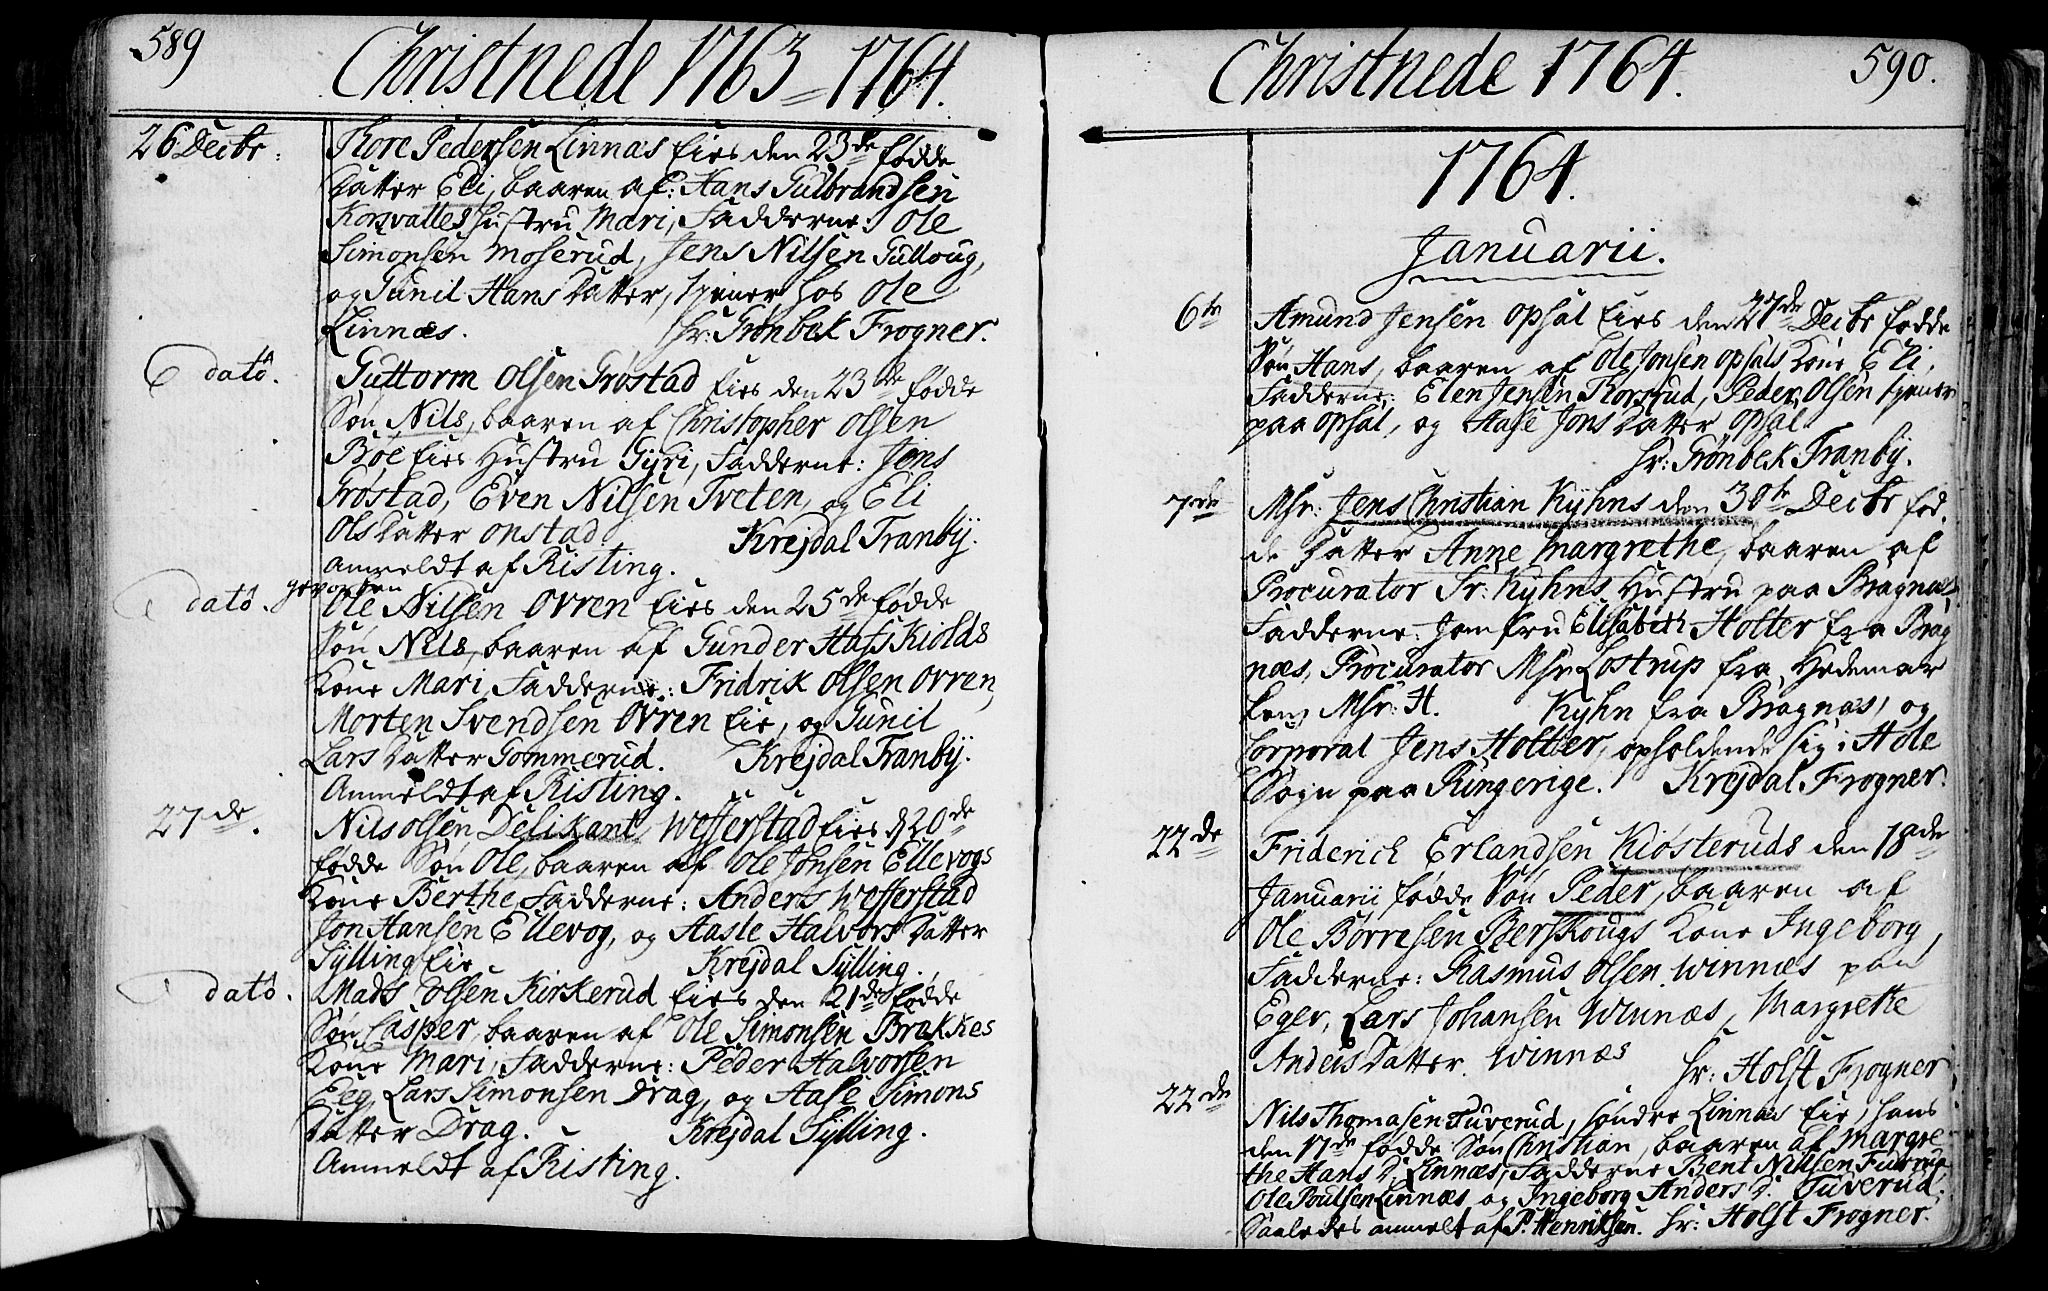 589
Christnede 1763 = 1764.
26 Decbr:
Tore Pedersen Linnæs Eies den 23de fødde
Datter Eli, baaren af: Hans Gulbrandsen
Korsvattes Hustru Mari, Fadderne: Ole
Simonsen Moserud, Jens Nilsen Gulloug,
og Gunil Hans Datter, tjener hos Ole
Linnæs. Hr: Grønbek Frogner.
E dato.
Guttorm Olsen Grøstad Eies den 23de fødde
Søn Nils, baaren af Christopher Olsen
Böe Eies Hustru Gyri, Fadderne: Jens
Grostad, Even Nilsen Tveten, og Eli
Ols Datter Onstad Krejdal Tranbÿ.
Anmeldt af Risting.
E dato.
Ole Nilsen Ovren Eies den 25de fødde
Søn Nils, baaren af Gunder Hafs Kiolds
Kone Mari, Fadderne: Fridrik Olsen Ovren,
Morten Svendsen Ovren Eie, og Gunil
Lars Datter Gommerud. Krejdal Tranbÿ.
Anmeldt af Risting.
27de.
Nils Olsen Delikant Wefferstad Eies d 20de
fødde Søn Ole, baaren af Ole Jonsen Ellevogs
Kone Berthe, Fadderne: Anders Wefferstad
Jon Hansen Ellevog, og Aasle Halvors Datter
Sylling Eie Krejdal Sylling.
E dato.
Mads Olsen Kirkerud Eies den 21de fødde
Søn Casper, baaren af Ole Simonsen Brakkes
Kone Mari, Fadderne: Peder Halvorsen
Eeg, Lars Simonsen Drag, og Aase Simons
Datter Drag. Krejdal Sylling.
Anmeldt af Risting.
Christnede 1764.
590.
1764.
Januarii.
6te
Amund Jensen Opsal Eies den 27de Decbr fødde
Søn Hans, baaren af Ole Jonsen Opsals Kone Eli,
Fadderne: Elen Jensen Korsrud, Peder Olsen tjener
paa Opsal, og Aase Jons Datter Opsal
Hr: Grönbek Tranby.
7de
Msr: Jens Christian Kyhns den 30te Decbr fød,
de Datter Anne Margrethe, baaren af
Procurator Sr: Kyhns Hustru paa Bragnæs,
Fadderne: Jomfru Elisabeth Holter fra Brag
næs, Procurator Msr: Lostrup fra Hedemar
ken, Msr: H. Kyhn fra Bragnæs, og
Corporal Jens Holter, opholdende sig i Hole
Sogn paa Ringerige. Krejdal Frogner.
22de
Friderich Erlandsen Kiøsteruds den 18de
Januarii fødde Søn Peder, baaren af
Ole Börresen Berskougs Kone Ingeborg,
Fadderne: Rasmus Olsen Winnæs paa
Eger, Lars Johansen Winnæs, Margrette
Anders Datter Winnæs Hr: Holst Frogner
22de
Nils Thomasen Tuverud, söndre Linnæs Eie, hans
den 17de fødde Søn Christian, baaren af Margre
the Hans D: Linnæs, Fadderne Bent Nillsen
Ole Poulsen Linnæs og Ingeborg Anders D: Tuverud.
Saaledes anmelt af P: Henriksen. Hr: Holst Frogner.